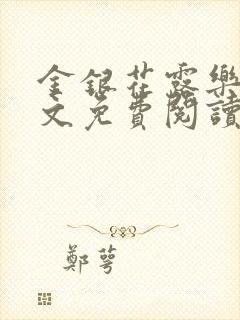 金銀花露樂
文免費閱讀
鄭萼